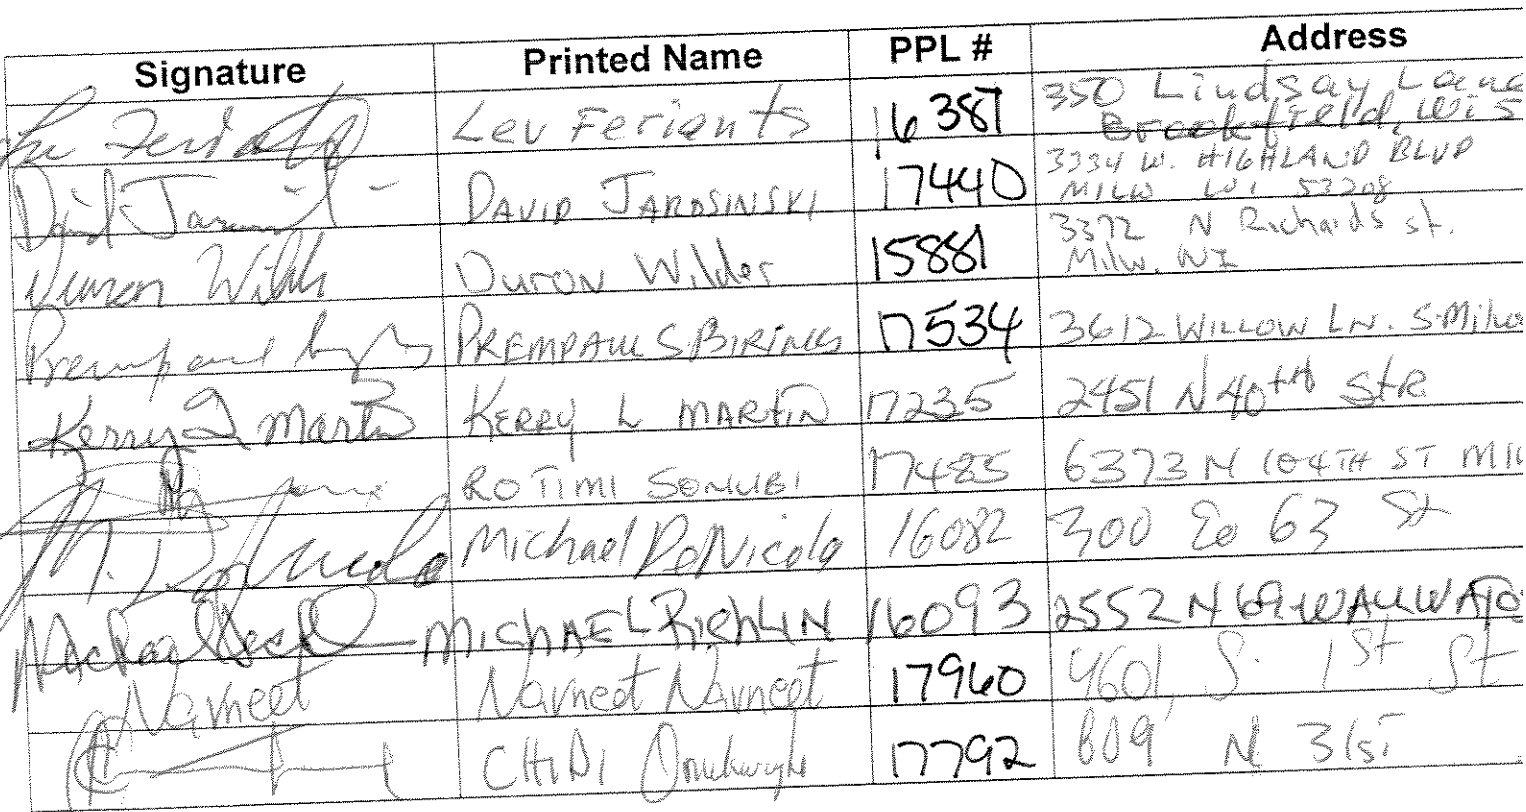 Signature Printed Name PPL # Address
Lev Feriants 16387 350 Lindsay Lane
Brookfield, WI 5
David Jarosinski DAVID JAROSINSKI 17440 3334 W. HIGHLAND BLVD
MILW WI 53208
Duron Wilder Duron Wilder 15881 3372 N Richards St.
Milw. WI
Prempaul PREMPAUL S. BIRING 17534 3612 WILLOW LN. S. Milw
Kerry L Martin KERRY L MARTIN 17235 2451 N 40TH STR
ROTIMI SONUBI 17485 6373 N 104TH ST MIL
M. DeNicola Michael DeNicola 16082 300 Eo 63 St
Michael MICHAEL RICHLIN 16093 2552 N 69 WAUWATOS
Navneet Navneet Navneet 17960 4601, S. 1st St
CHIDI 17792 809 N 31ST